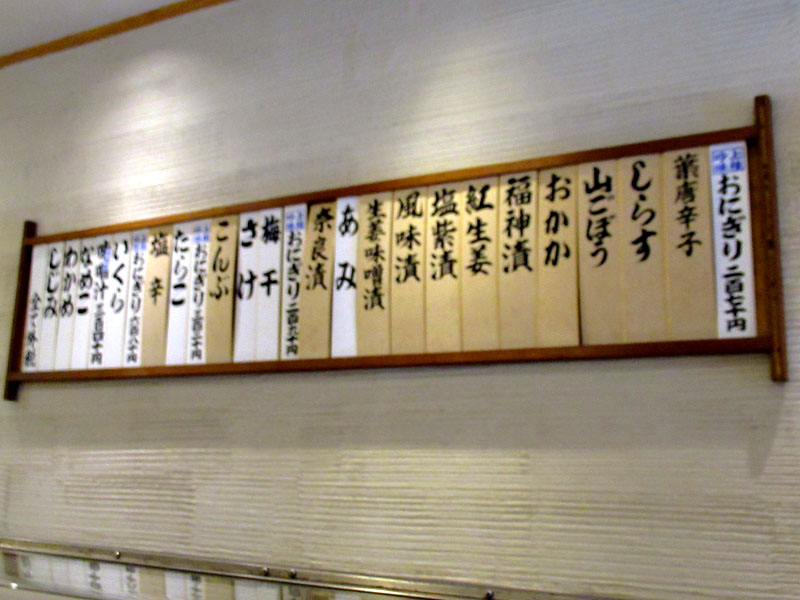 上撰吟味 おにぎり 二百七十円
葉唐辛子
しらす
山ごぼう
おかか
福神漬
紅生姜
塩紫漬
風味漬
生姜味噌漬
あみ
奈良漬
おにぎり 二百九十円
梅干
さけ
こんぶ
おにぎり 三百二十円
たらこ
塩辛
おにぎり 六百八十円
いくら
味噌汁 三百四十円
なめこ
わかめ
しじみ